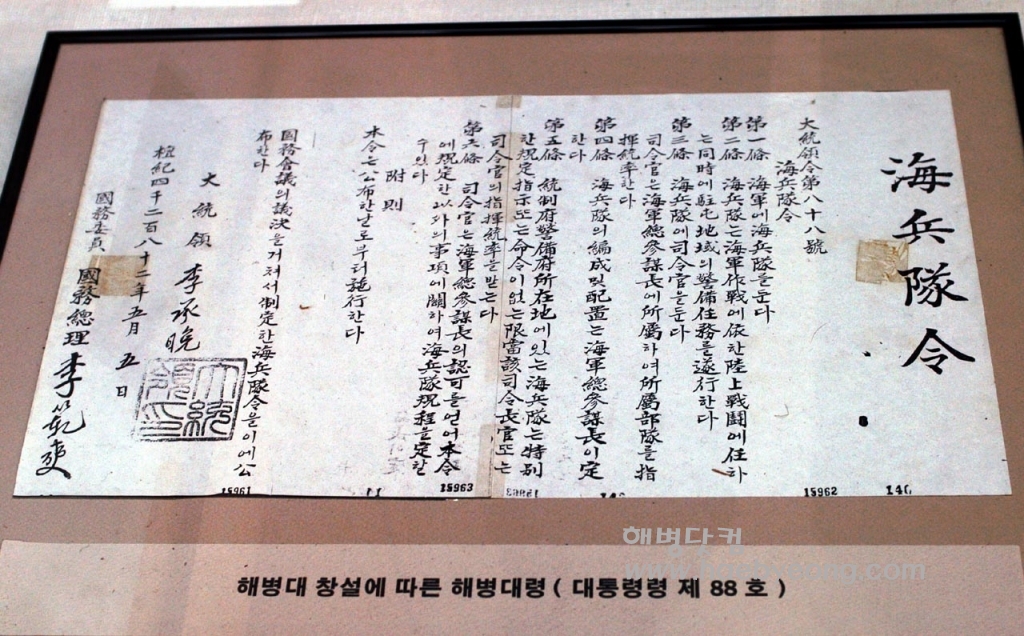 海兵隊令
大統領令第八十八號
海兵隊令
第一條 海軍에海兵隊를둔다
第二條 海兵隊는海軍作戰에依한陸上戰鬪에任하
는同時에駐屯地域의警備任務를遂行한다
第三條 海兵隊에司令官을둔다
司令官은海軍總參謀長에所屬하여所屬部隊를指
揮統率한다
第四條 海兵隊의編成및配置는海軍總參謀長이定
한다
第五條 統制府警備府所在地에있는海兵隊는特別
한規定指示또는命令이없는限當該司令長官또는
司令官의指揮統率을받는다
第六條 司令官은海軍總參謀長의認可를얻어本令
에規定한以外의事項에關하여海兵隊規程을定할
수있다
附則
本令은公布한날로부터施行한다
國務會議의議決을거쳐서制定한海兵隊令을이에公
布한다
大統領 李承晩
大統領印
檀紀四千二百八十二年五月五日
國務委員 國務總理 李範奭
15961
15963
15962
140
해병닷컴
해병대 창설에 따른 해병대령 ( 대통령령 제 88 호 )